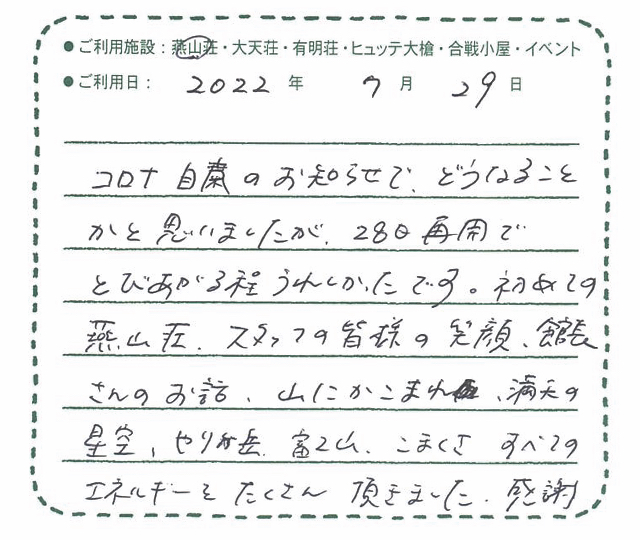 ● ご利用施設：燕山荘・大天荘・有明荘・ヒュッテ大槍・合戦小屋・イベント
● ご利用日： 2022 年 7 月 29 日
コロナ自粛のお知らせで、どうなること
かと思いましたが、28日再開で
とびあがる程うれしかったです。初めての
燕山荘、スタッフの皆様の笑顔、館長
さんのお話、山にかこまれ、満天の
星空、やりが岳、富士山、こまくさ すべての
エネルギーをたくさん頂きました。感謝